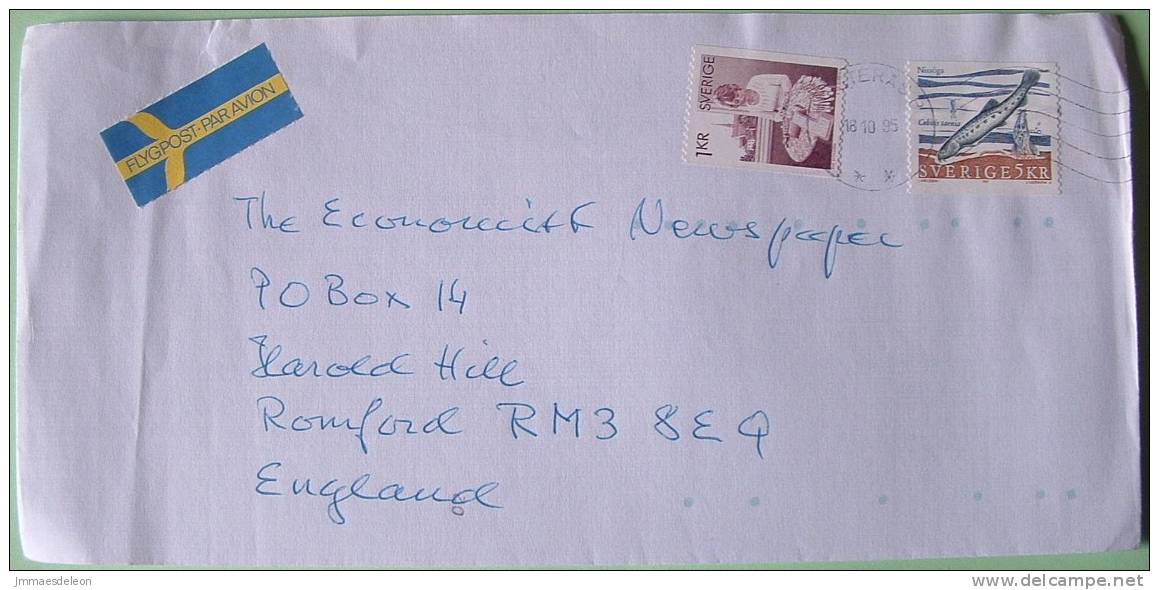 FLYGPOST·PAR AVION
1KR SVERIGE
18 10 95
Nissöga
Cobitis taenia
SVERIGE 5KR
The Economist Newspaper
PO Box 14
Harold Hill
Romford RM3 8EQ
England
jmmaesdeleon
www.delcampe.net